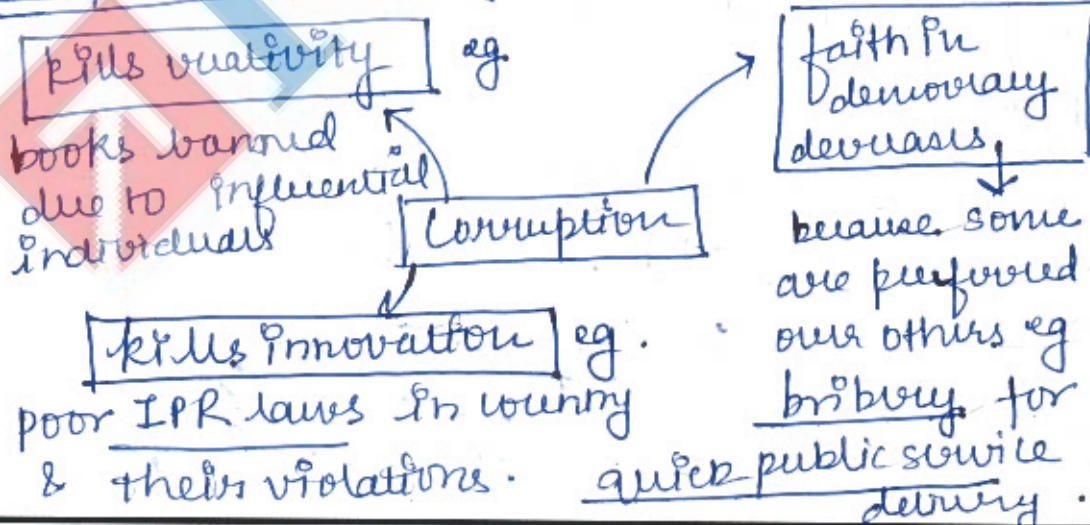 kills creativity eg.
books banned
due to influential
individuals
Corruption
faith in
democracy
decreases,
because some
are preferred
over others eg
bribery for
quick public service
delivery.
kills innovation eg.
poor IPR laws in country
& their violations.